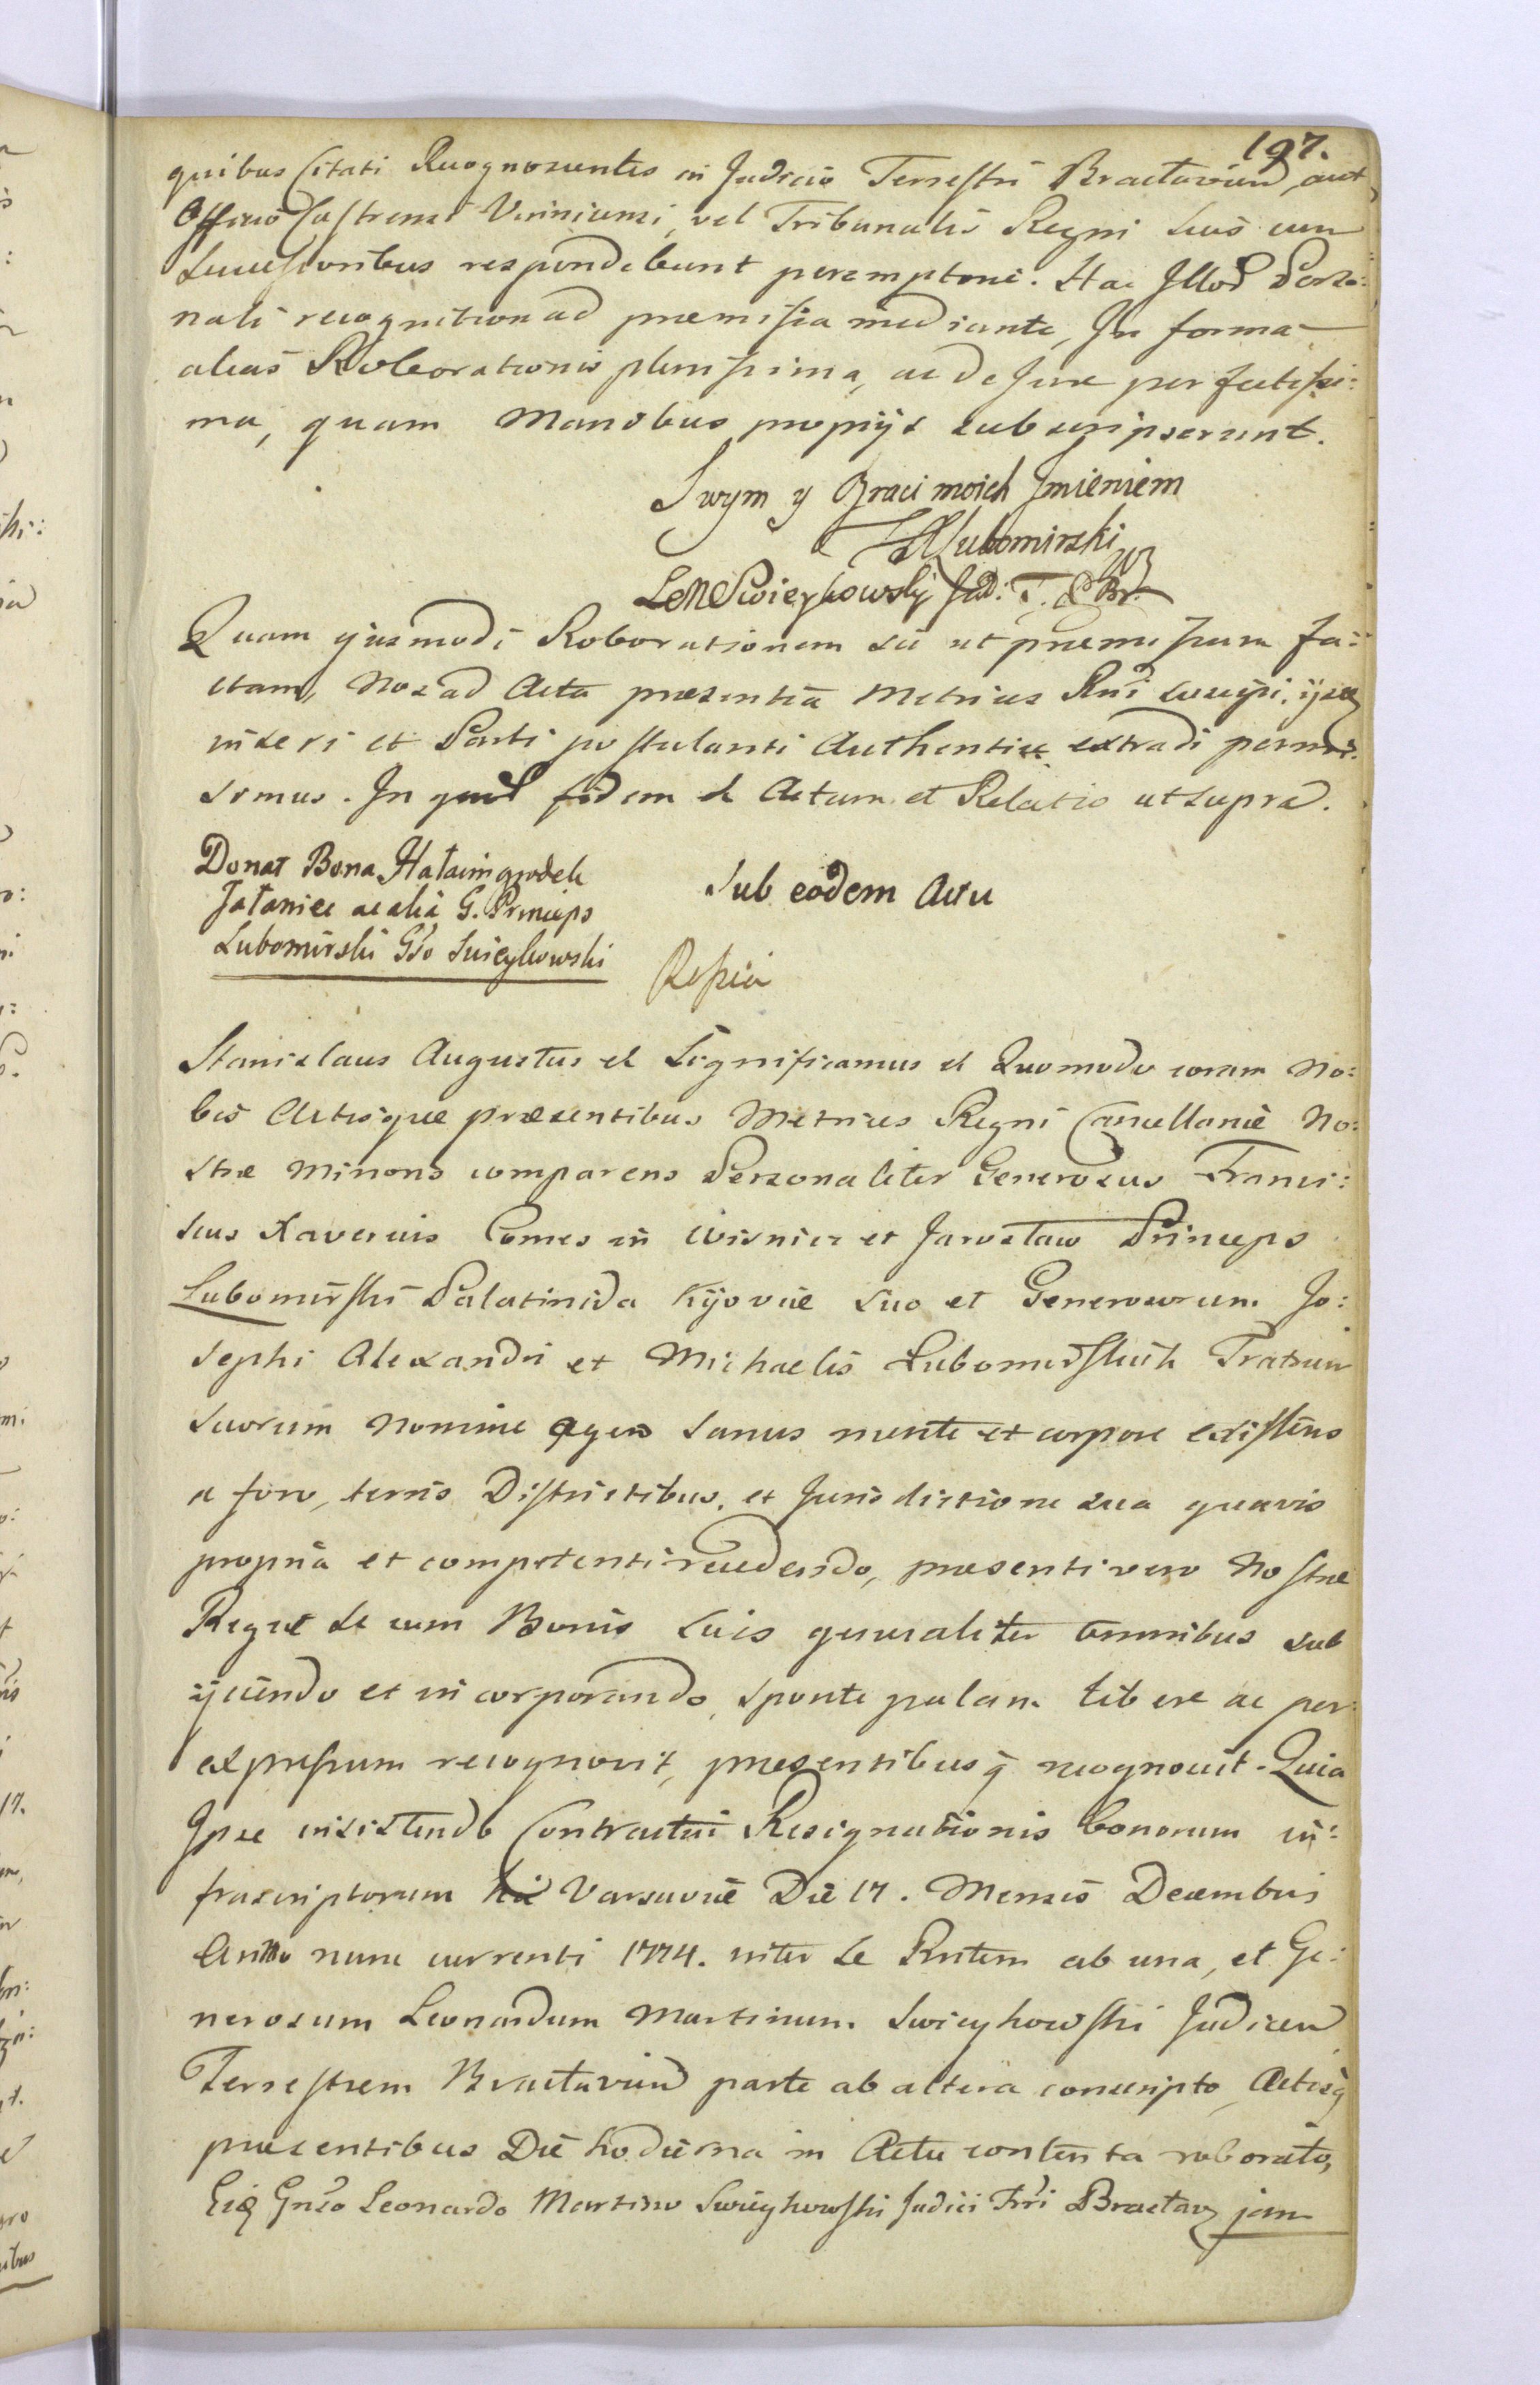 197.
quibus Citati Recognoscentes in Judicio Terrestri Braclavien aut
Officio Castrensi Viniciensi, vel Tribunalis Regni suis cum
Successoribus respondebunt peremptorie. Hac Illor Perso:
nali recognitione ad præmissa mediante, In forma
alias Roborationis plenissima, ac de Jure perfectissi:
ma, quam Manibus propijs subscripserunt.
Swym y Braci moich Jmieniem
Lubomirski
Swieykowsky Sęd: Z. Br.
Quam ejusmodi Roborationem sic ut præmissum fa:
ctam, Nos ad Acta præsentia Metrices Rni suscepi, ijsq
inseri et Parti postulanti Authentice extradi permi:
simus. In quor fidem et Actum et Relatio ut supra.
Donat Bona Hałaimgrodek
Jałaniec ac alia G. Princeps
Lubomirski Gso Swieykowski
Sub eodem Actu
Rossia
Stanislaus Augustus et Significamus et Quomodo coram No:
bis Actisque præsentibus Metrices Regni Cancellariæ No:
stræ Minoris comparens Personaliter Generosus Franci:
scus Xaverius Comes in Wisnicz et Jarosław Princeps
Lubomirski Palatinida Kijoviæ suo et Generosorum Jo:
sephi Alexandri et Michaelis Lubomirskich Fratrum
suorum Nomine agens sanus mente et corpore existens
a foro, terris Districtibus, et Jurisdictione sua quavis
propria et competenti recedendo, præsenti vero Nostræ
Regiæ se cum Bonis suis generaliter omnibus sub
ijciendo et incorporando, sponte palam libere ac per
expressum recognovit, præsentibusq recognoscit. Quia
Ipse insistendo Contractui Resignationis bonorum in:
frascriptorum hic Varsaviæ Die 17. Mensis Decembris
Anno nunc currenti 1774. inter se Rntem ab una, et Ge:
nerosum Leonardum Martinum Swieykowski Judicem
Terrestrem Braclavien parte ab altera conscripto, Actisq
præsentibus Die hodierna in Actu contenta roborato,
Eiq Gnso Leonardo Martino Swieykowski Judici Trri Braclav jam